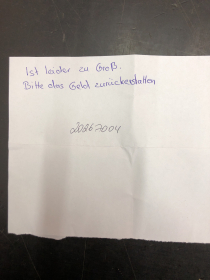 Ist leider zu Groß.
Bitte das Geld zurückerstatten
20267004